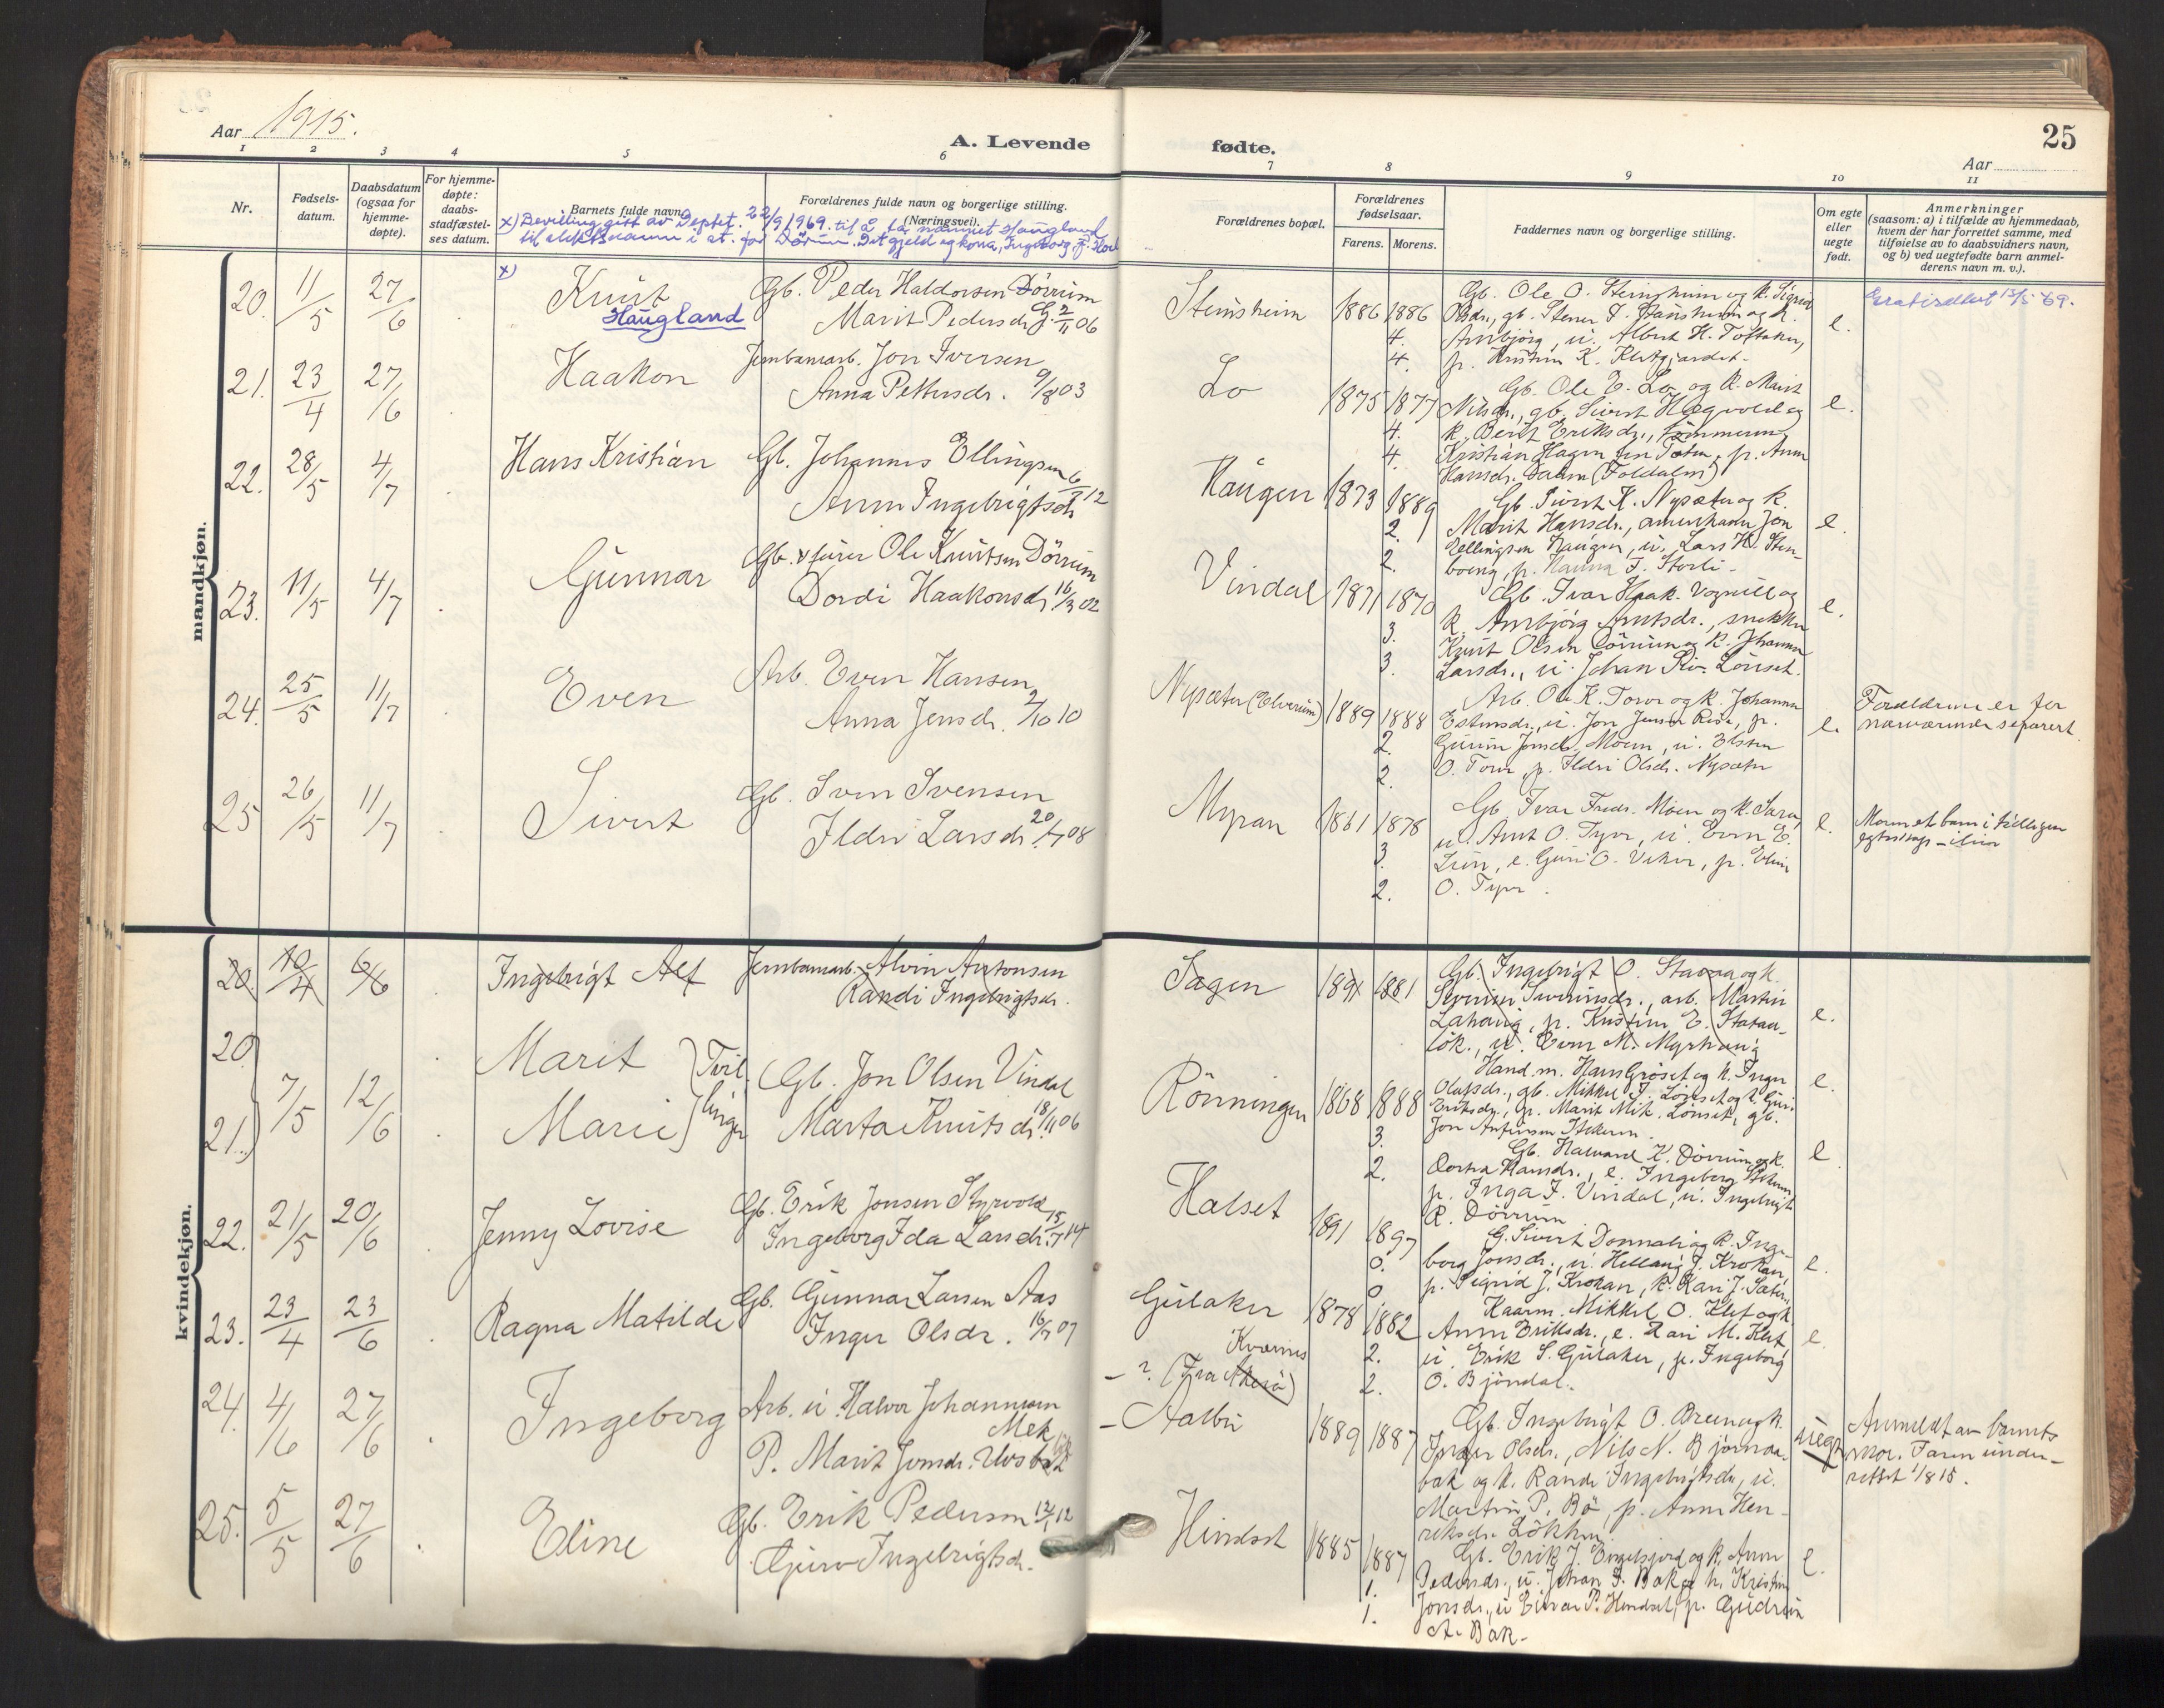 Aar 1915.
A. Levende
fødte.
25
Aar
1 2 3 4 5 6 7 8 9 10 11
Nr.
Fødsels-
datum.
Daabsdatum
(ogsaa for
hjemme-
døpte).
For hjemme-
døpte:
daabs-
stadfæstel-
ses datum.
Barnets fulde navn.
Forældrenes fulde navn og borgerlige stilling.
(Næringsvei).
Forældrenes bopæl.
Forældrenes
fødselsaar.
Farens. Morens.
Faddernes navn og borgerlige stilling.
Om egte
eller
uegte
født.
Anmerkninger
(saasom: a) i tilfælde av hjemmedaab,
hvem der har forrettet samme, med
tilføielse av to daabsvidners navn,
og b) ved uegtefødte barn anmel-
derens navn m. v.).
x) Bevilling gitt av Deptet. 22/9 1969 til å ta navnet Haugland
til slektsnavn i st. for Dörum. Det gjeld og kona, Ingeborg J.
mandkjøn.
20. 11/5 27/6 x) Knut Gb. Peder Haldorsen Dörrum
Haugland Marit Pedersdr. 2/11 06
Stensheim 1886 1886 4. 4.
Gb. Ole O. Stensheim og k. Sigrid
Olsdr., gb. Stener
Annbjörg, u. Albert H. Toftaker,
p. Kristin K. Kletgjardet.
e. Gratisattest 15/5 69.
21. 23/4 27/6 Haakon Jernbanearb. Jon Iversen
Anna Pettersdr. 9/8 03
Lo 1875 1877 4. 4.
Gb. Ole E. Lo og k. Marit
Nilsdr., gb. Sivert Hægvold og
k. Berit Eriksdr., tömmerm.
Kristian Hagen fra Toten, p. Anne
Hansdr. Dalen (Foldalen)
e.
22. 28/5 4/7 Hans Kristian Gb. Johannes Ellingsen
Anne Ingebrigtsdr. 6/1 12
Haugen 1873 1889 2. 2.
Gb. Sivert K. Nysæter og k.
Marit Hansdr., amerikaner Jon
Ellingsen Haugen, u. Lars H. Sten-
boeng, p. Hanna F. Storli.
e.
23. 11/5 4/7 Gunnar Gb. x furer Ole Knutsen Dörrum
Dordi Haakonsdr. 16/3 02
Vindal 1871 1870 3. 3.
Gb. Ivar Haak. Vognill og
k. Annbjörg Arntsdr., snekker
Knut Olsen Dörrum og k. Johanna
Larsdr., u. Johan Lönset.
e.
24. 25/5 11/7 Even Arb. Even Hansen
Anna Jensdr. 2/10 10
Nysæter (Elverum) 1889 1888 2. 2.
Arb. Ole K. Torve og k. Johanna
Estensdr., u. Jon Jensen Rise, p.
Gurun Jonsdr. Moen, u. Esten
O. Torve, p. Ildri Olsdr. Nysæter
e. Forældrene er for
nærværende separert.
25 26/5 11/7 Sivert Gb. Sven Svensen
Ildri Larsdr. 20/7 08
Myran 1861 1878 3. 2.
Gb. Ivar Fredr. Moen og k. Sara,
u. Arnt O. Tyve, u. Even E.
Lien, e. Guri O. Viken, p. Elin
O. Tyve.
e. Moren et barn i tidligere
egteskap – ilive
kvindekjøn.
20. 10/4 6/6 Ingebrigt Alf Jernbanearb. Alvin Antonsen
Randi Ingebrigtsdr.
Sagen 1891 1881
Gb. Ingebrigt O. Stavaa og k.
Sivrine Sivrinsdr., arb. Martin
Lahaug, p. Kristine E. Stavaa-
lök., u. Even M. Myrhaug
e.
20. Marit } Tvil
21. 7/5 12/6 Marie } linger
Gb. Jon Olsen Vindal
Marta Knutsdr. 18/11 06
Rönningen 1868 1888 3. 2.
Hand.m. Hans Gröset og k. Inger
Olafsdr., gb. Mikkel J. Lönset og k. Guri
Eriksdr., p. Marit Mik. Lönset, gb.
Jon Anfinsen Stekeren.
e.
Gb. Halvard K. Dörrum og k.
Dortea Hansdr., e. Ingeborg Stekeren
p. Inga J. Vindal, u. Ingebrigt
R. Dörrum
e
22. 21/5 20/6 Jenny Lovise Gb. Erik Jonsen Styrvold
Ingeborg Ida Larsdr. 15/7 14
Halset 1891 1897 0. 0
G. Sivert Donnali og k. Inge-
borg Jonsdr., u. Hellaug J. Krokan,
p. Sigrid J. Krokan, k. Kari J. Sæter.
e.
23. 23/4 23/6 Ragna Matilde Gb. Gunnar Larsen Aas
Inger Olsdr. 16/7 07
Gulaker 1878 1882 2. 2.
Kaarm. Mikkel O. Klet og k.
Anne Eriksdr., e. Kari M. Klet,
u. Erik S. Gulaker, p. Ingeborg
O. Bjöndal.
e
24. 4/6 27/6 Ingeborg Arb. u. Halvor Johannesen
Mek
P. Marit Jonsdr. Uvsbak
Kvernes
– ? (Fra Akerö)
– Aalbu 1889 1887
Gb. Ingebrigt O. Breen og k.
Inger Olsdr., Nils N. Bjørnaa-
bak og k. Randi Ingebrigtsdr., u.
Martin P. Bö, p. Anne Hen-
riksdr. Lökken.
uegte Anmeldt av barnets
mor. Faren under-
rettet 1/8 15.
25. 5/5 27/6 Eline Gb. Erik Pedersen 12/1 12
Guro Ingebrigtsdr.
Hindset 1885 1887 1. 1.
Gb. Erik J. Engelsjord og k. Anne
Pedersdr., u. Johan J. Bak og k. Kristin
Jonsdr., u Einar P. Hindset, p. Gudrun
A. Bak.
e.